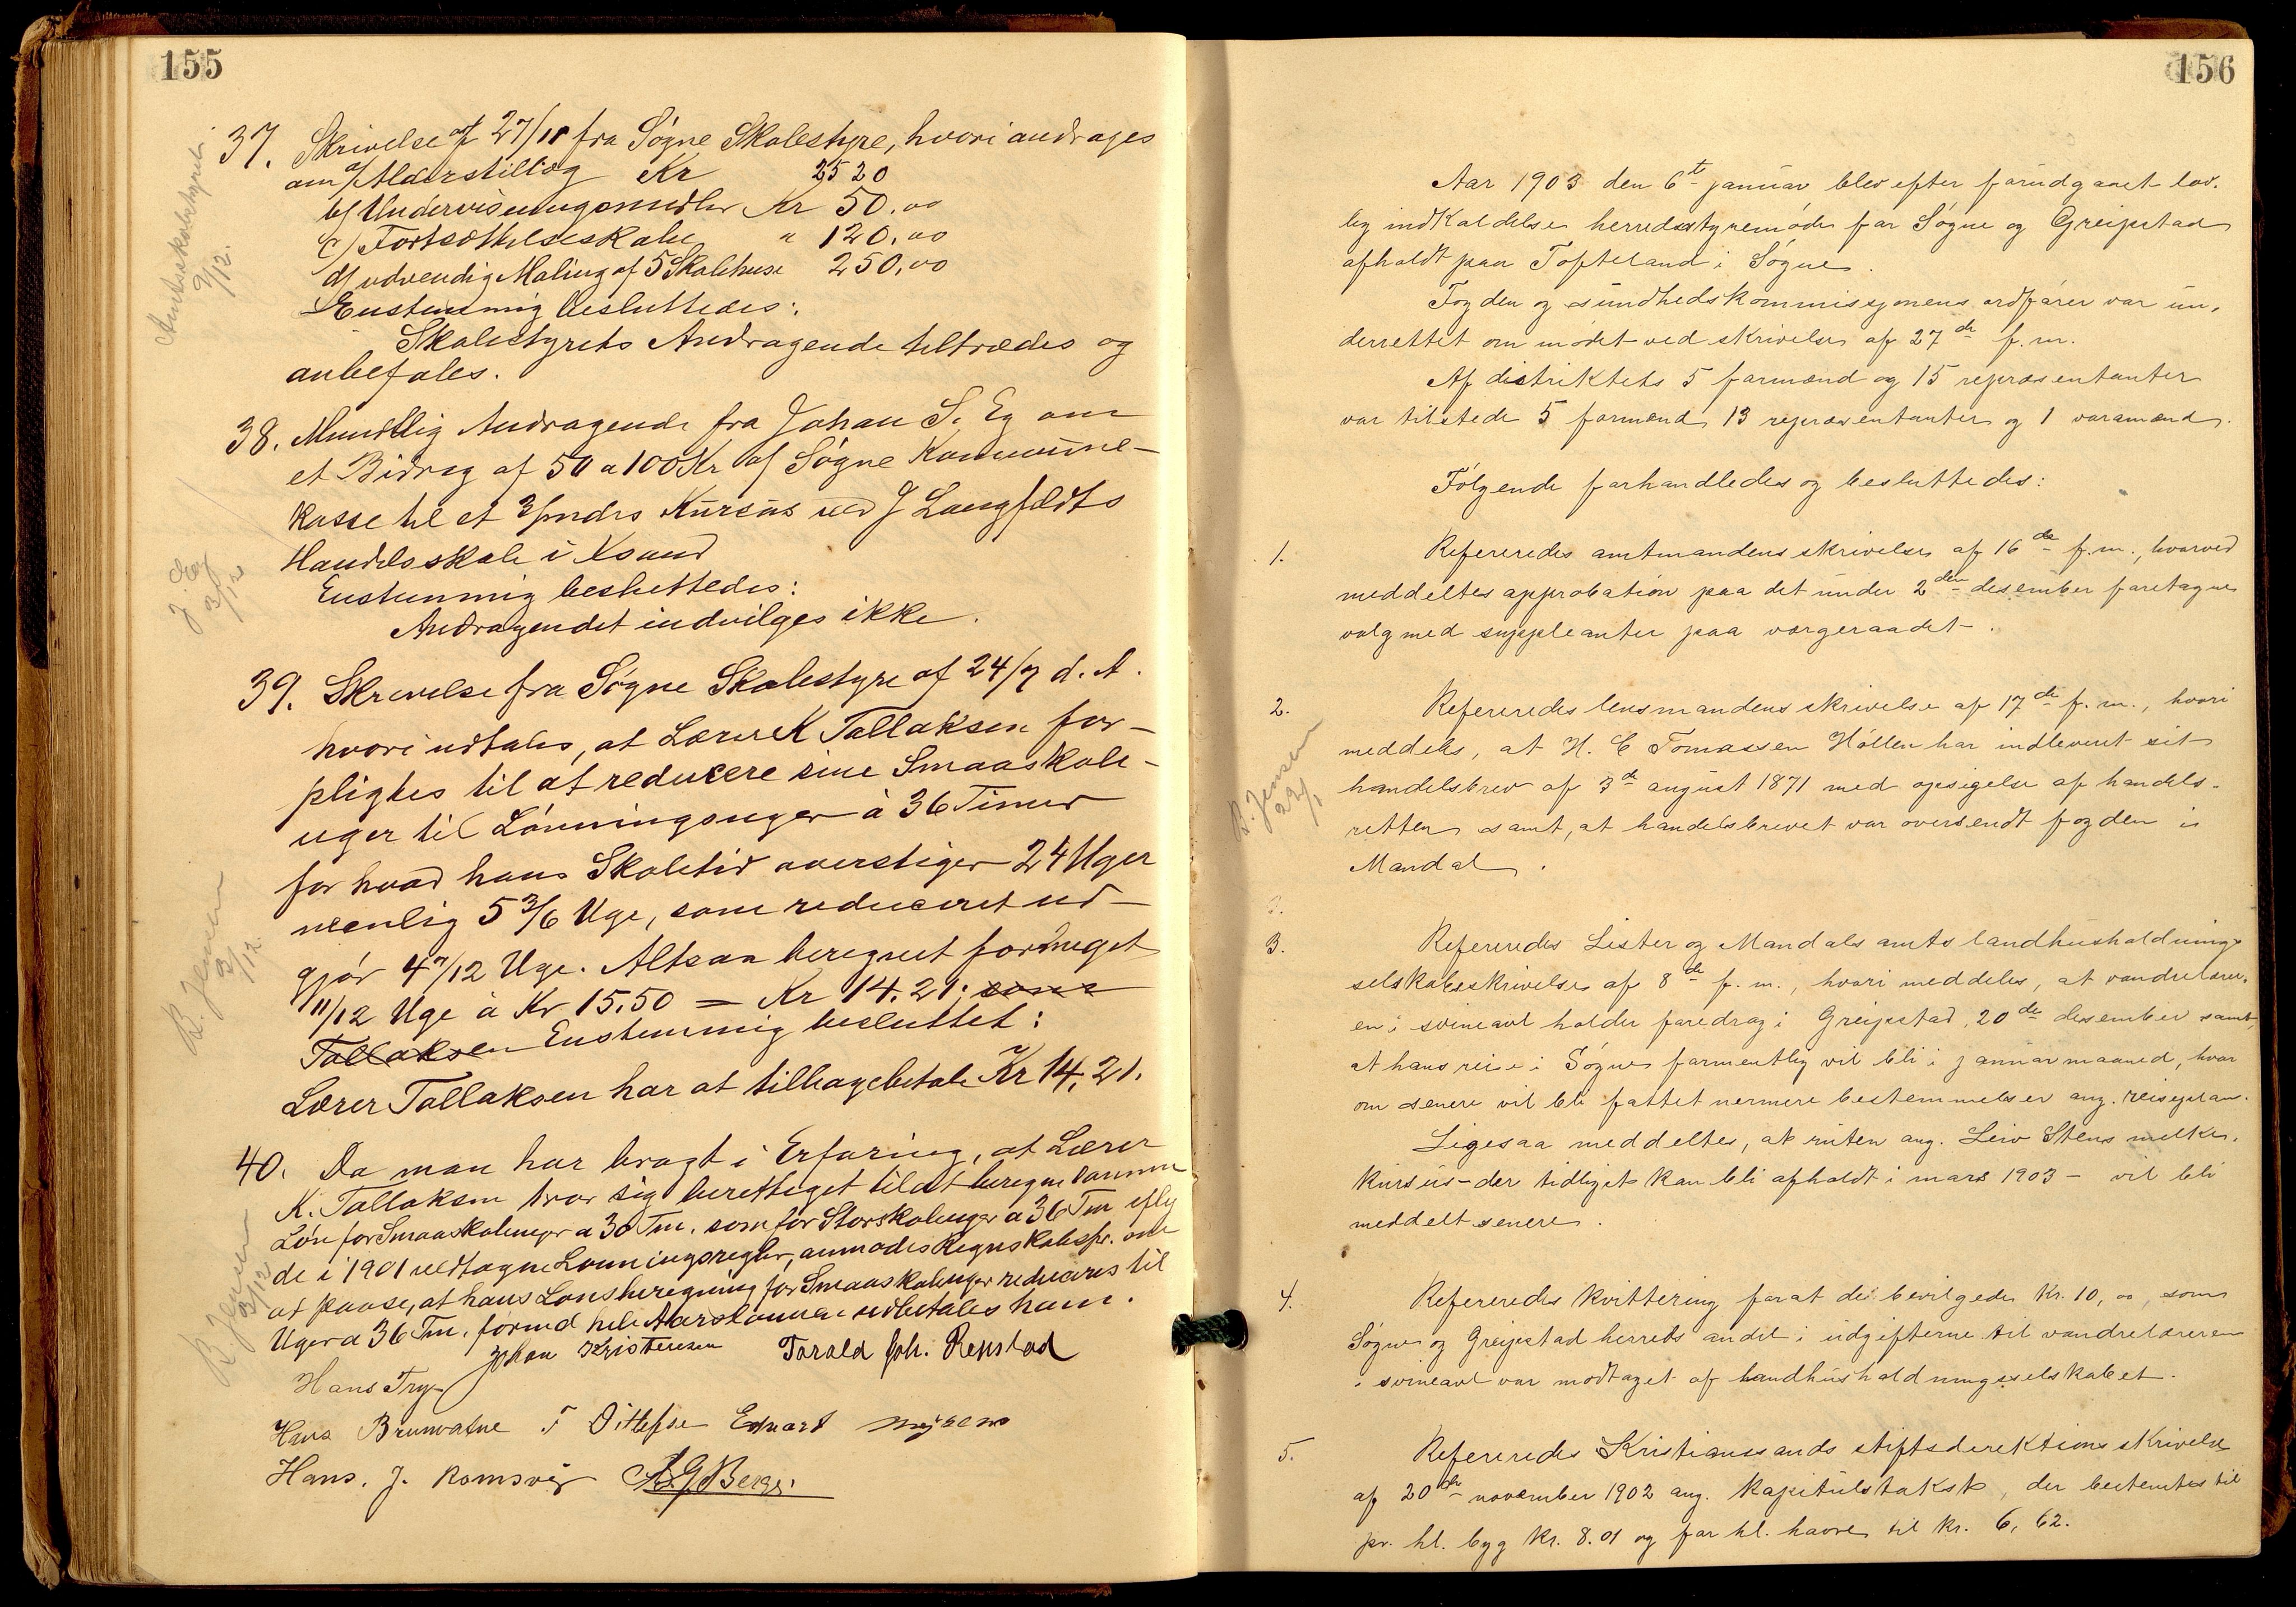 155
37. Skrivelse af 27/11 fra Søgne Skolestyre, hvori andrages
om a/ Alderstillæg Kr 25 20
b/ Undervisningsmidler Kr 50.00
c/ Fortsættelseskole " 120,00
d/ udvendig Maling af 5 Skolehuse 250,00
Enstemmig besluttedes:
Skolestyrets Andragende tiltrædes og
anbefales.
Amtsskolestyret
9/12.
38. Mundtlig Andragende fra Johan S. Eg om
et Bidrag af 50 a 100 Kr af Søgne Kommune-
kasse til et 3/mdrs Kursus ved J Langfeldts
Handelsskole i Ksand
Enstemmig besluttedes:
Andragendet indvilges ikke.
J. Eg
3/12
39. Skrivelse fra Søgne Skolestyre af 24/9 d. A.
hvori udtales, at Lærer K Tallaksen for-
pligtes til at reducere sine Smaaskole-
uger til Lønningsuger à 36 Timer
for hvad hans Skoletid overstiger 24 Uger
nemlig 5 3/6 Uge, som reduceret ud-
gjør 4 7/12 Uge. Altsaa beregnet formeget
11/12 Uge à Kr 15.50 = Kr 14.21. som
Tallaksen Enstemmig besluttet:
Lærer Tallaksen har at tilbagebetale Kr 14,21.
B. Jensen
3/12.
40. Da man har bragt i Erfaring, at Lærer
K. Tallaksen tror sig berettiget til at beregne samme
Løn for Smaaskoleuger a 30 Tm. som for Storskoleuger a 36 Tm iflg
de i 1901 vedtagne Lønningsregler, anmodes Regnskabsf. om
at paase, at hans Lønsberegning for Smaaskoleuger reduceres til
Uger a 36 Tm. forind hele Aarslønnen udbetales ham.
B. Jensen
3/12
Johan Kristensen Torald Joh. Repstad
Hans Try
Hans Brunvatne T Ditlefsen Edvart
Hans. J. Romsvig A G Berge.
156
Aar 1903 den 6t januar blev efter forudgaaet lov-
lig indkaldelse herredsstyremøde for Søgne og Greipstad
afholdt paa Tofteland i Søgne.
Fogden og sundhedskommissjonens ordfører var un-
derrettet om mødet ved skrivelse af 27de f.m.
Af distriktets 5 formænd og 15 repræsentanter
var tilstede 5 formænd, 13 repræsentanter og 1 varamænd.
Følgende forhandledes og besluttedes:
1. Refereredes amtmandens skrivelse af 16de f.m., hvorved
meddeltes approbation paa det under 2den desember foretagne
valg med suppleanter paa vergeraadet.
2. Refereredes lensmandens skrivelse af 17de f.m., hvori
meddeles, at H. C Tomassen Høllen har indleveret sit
handelsbrev af 3de august 1871 med opsigelse af handels-
retten samt, at handelsbrevet var oversendt fogden i
Mandal.
B. Jensen
22/1
3.
3. Refereredes Lister og Mandals amts landhusholdnings
selskabsskrivelse af 8de f.m., hvori meddeles, at vandrelærer-
en i svineavl holder foredrag i Greipstad, 20de desember samt,
at hans reise i Søgne formentlig vil bli i januar maaned, hvor
om senere vil bli fattet nermere bestemmelser ang. reiseplan.
Ligesaa meddeltes, at ruten ang. Leiv Stens melke-
kursus – der tidligst kan bli afholdt i mars 1903 – vil bli
meddelt senere.
4. Refereredes kvittering for at de bevilgede Kr. 10,00, som
Søgne og Greipstad herreds andel i udgifterne til vandrelæreren
i svineavl var modtaget af landhusholdningsselskabet.
5. Refereredes Kristianssands stiftsdirektions skrivelse
af 20de november 1902 ang. kapitulstakst, der bestemtes til
pr. hl. byg Kr. 8.01 og for hl. havre til Kr. 6,62.